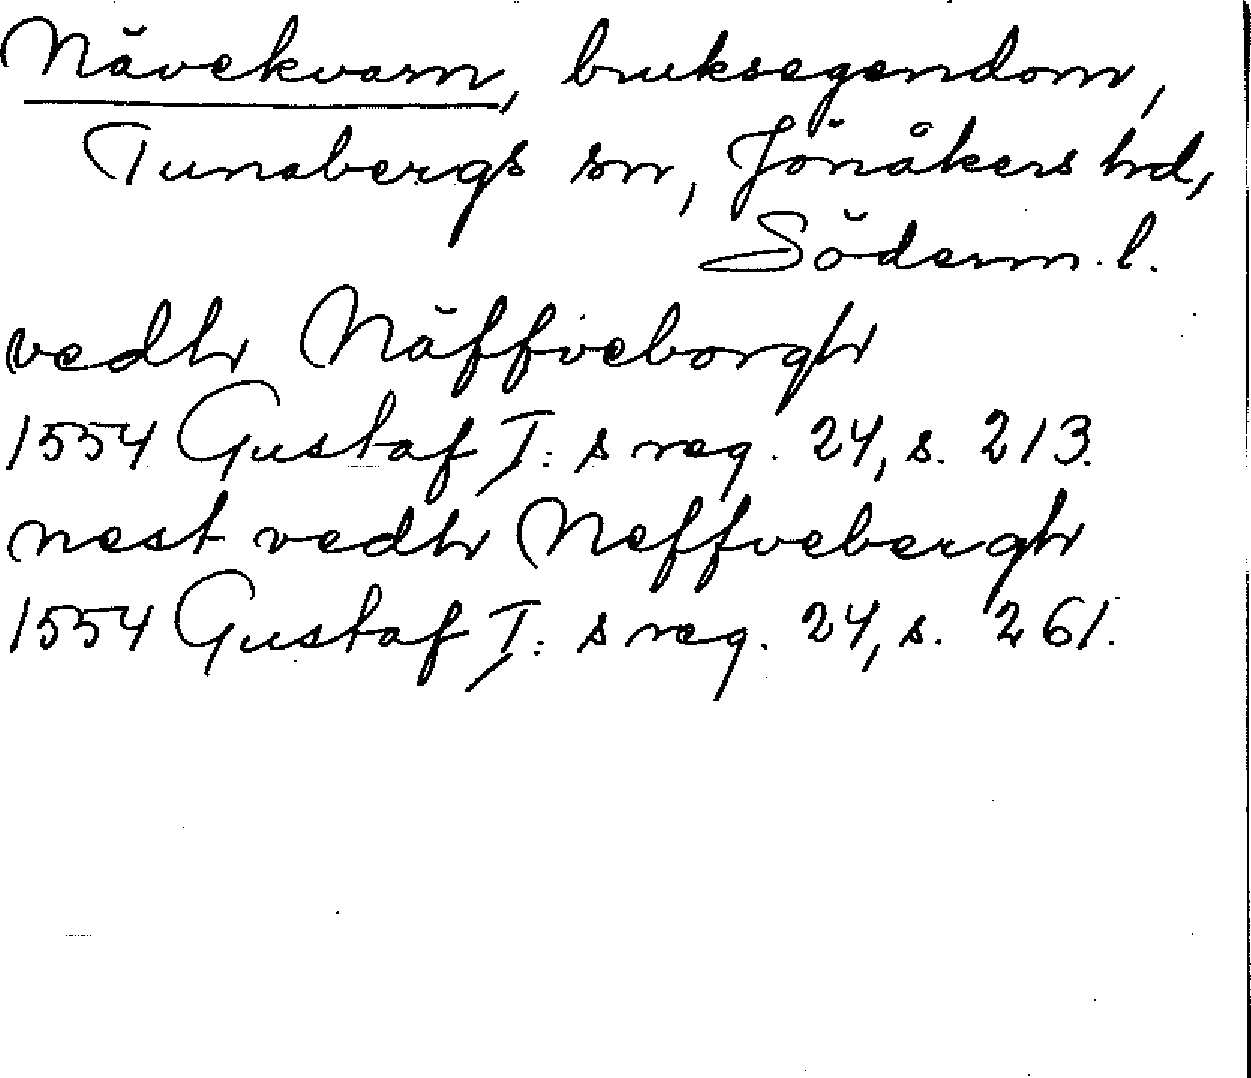 Nävekvarn, bruksegendom,
Tunabergs sn, Jönåkers hd,
Söderm. l.
vedh Näffveborgh
1554 Gustaf I: s reg. 24, s. 213.
nest vedh Neffvebergh
1554 Gustaf I: s reg. 24, s. 261.